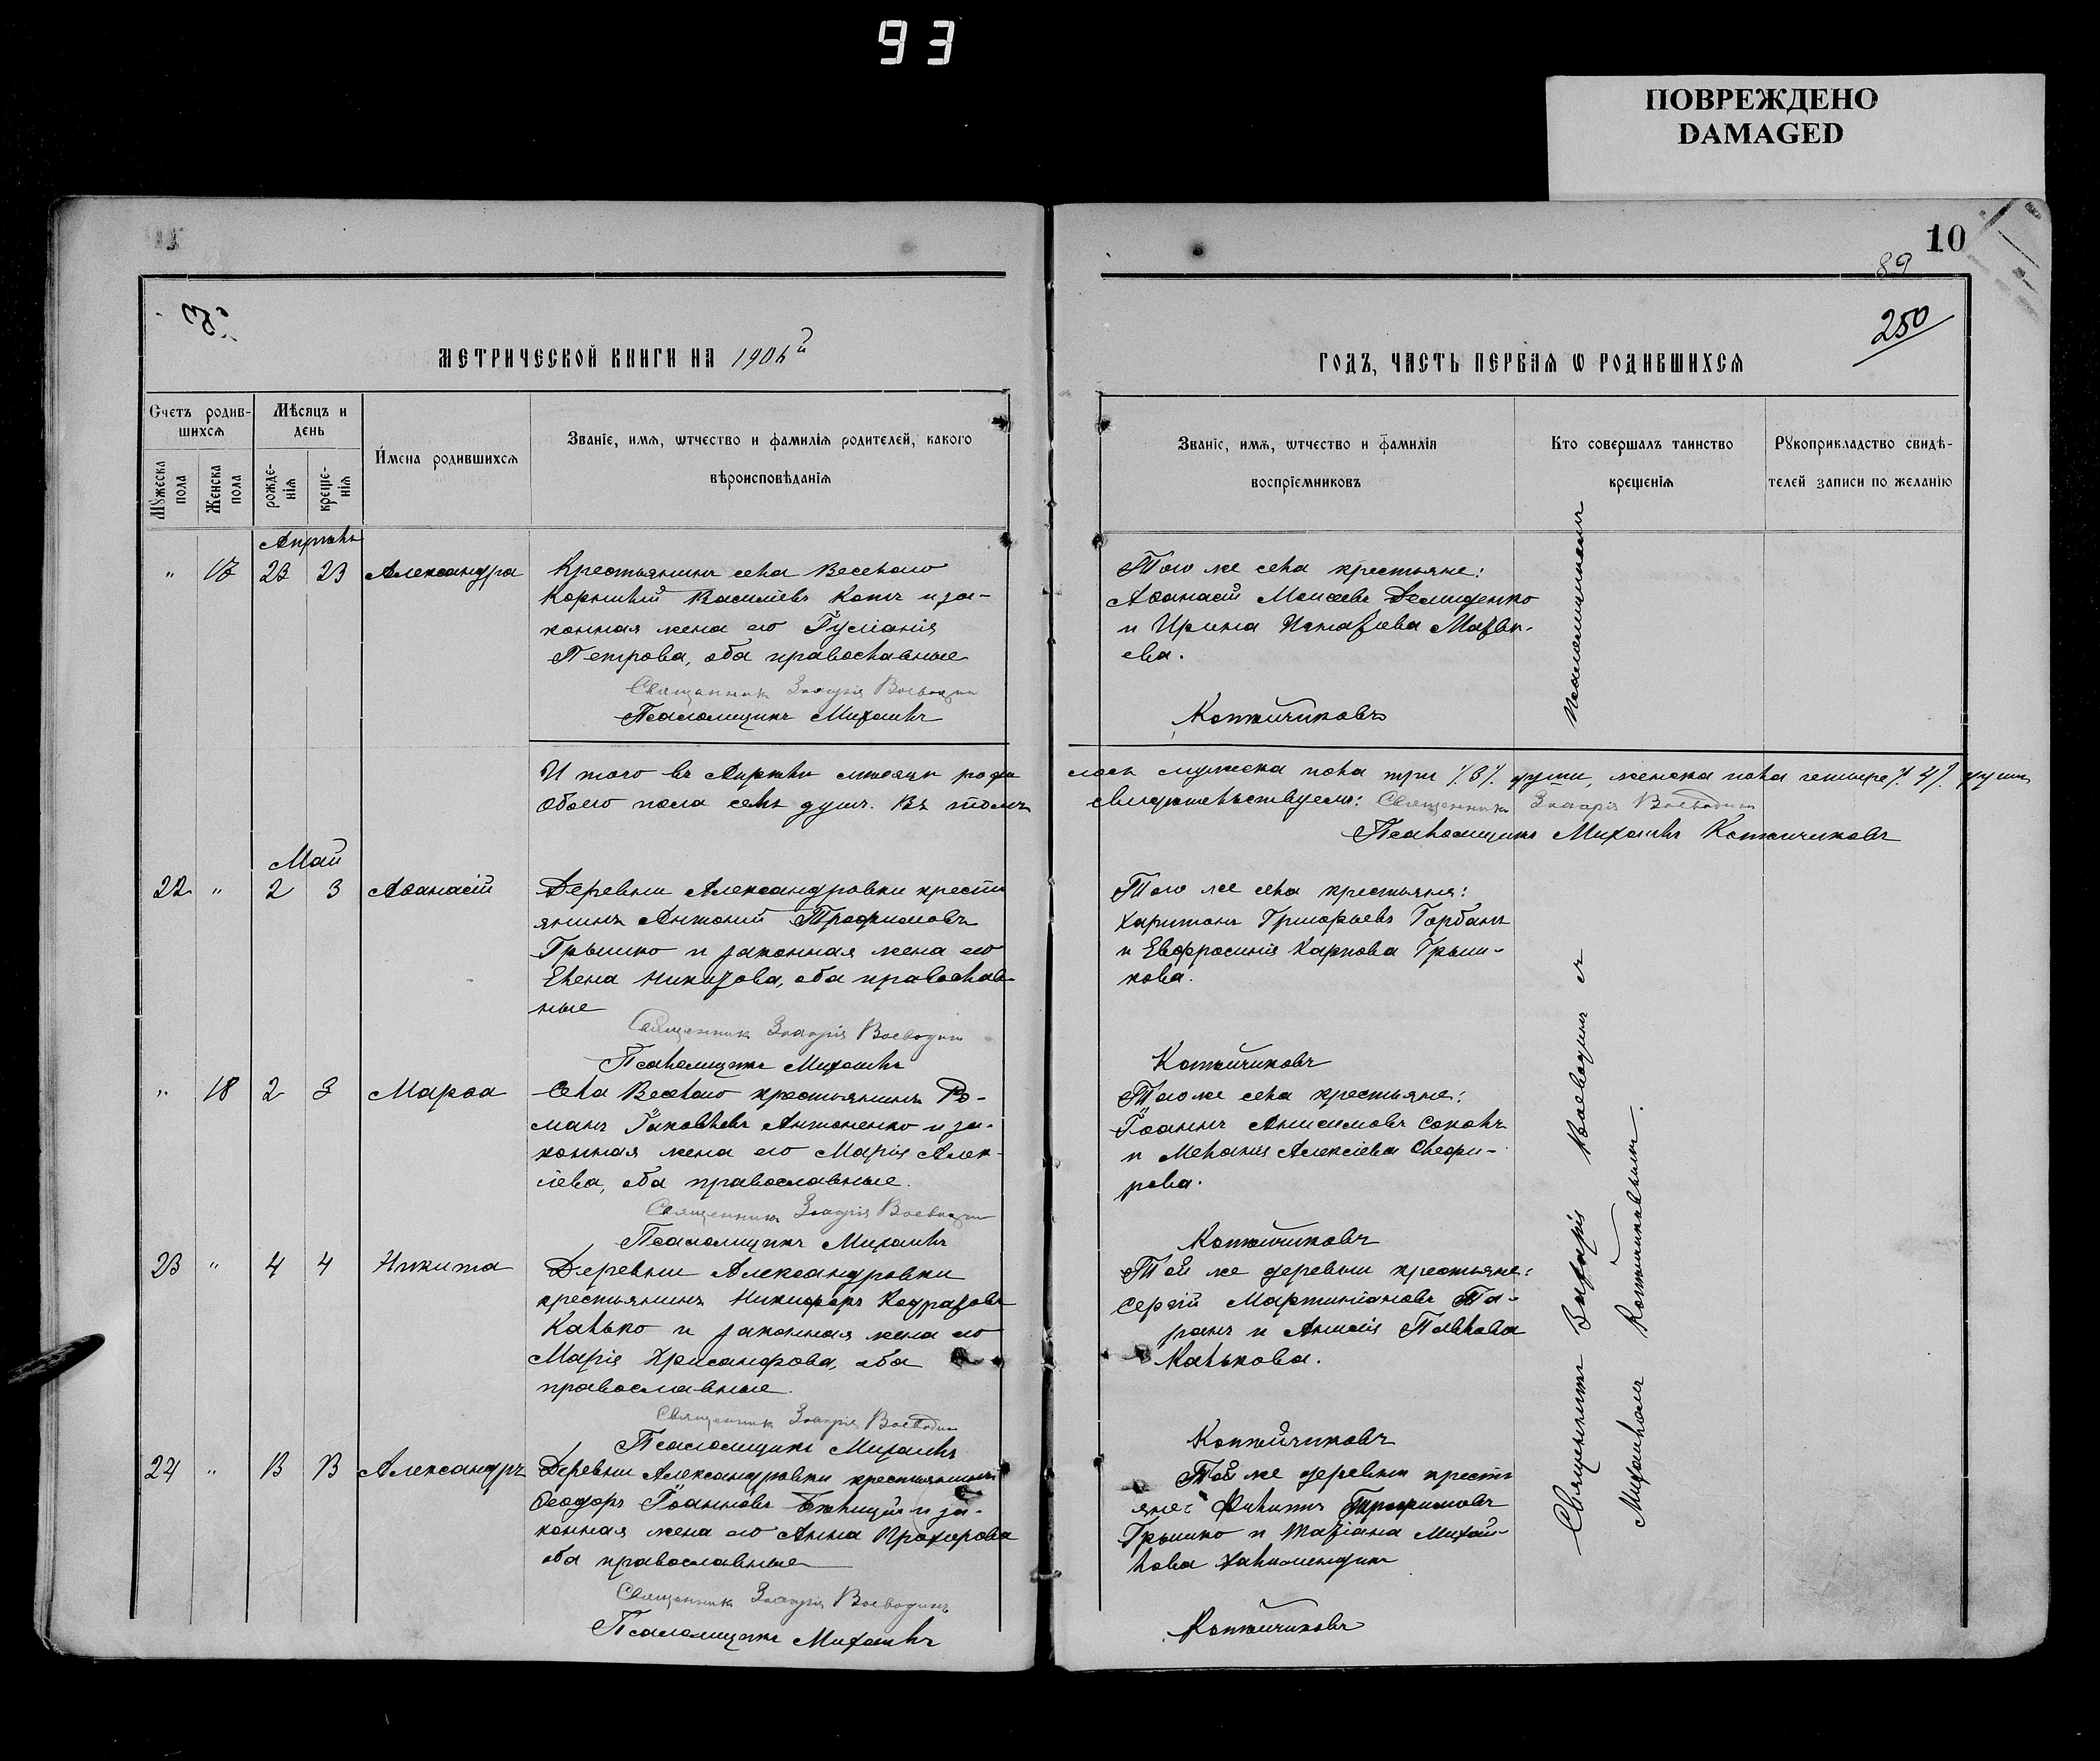 93
ПОВРЕЖДЕНО
DAMAGED
10
89
250
МЕТРИЧЕСКОЙ КНИГИ НА 1906й
ГОДЪ, ЧАСТЬ ПЕРВАЯ Ѡ РОДИВШИХСЯ
Счетъ родив-
шихся
Мѣсяцъ и
день
Имена родившихся
Званіе, имя, ѡтчество и фамилія родителей, какого
вѣроисповѣданія
Мужеска
пола
Женска
пола
рожде-
нія
креще-
нія
Званіе, имя, ѡтчество и фамилія
воспріемниковъ
Кто совершалъ таинство
крещенія
Рукоприкладство свидѣ-
телей записи по желанію
Апрѣль
" 17 23 23 Александра
Крестьянинъ села Веселаго
Корнилій Василіевъ Котъ и за-
конная жена его Іуліанія
Петрова, оба православные
Священникъ Захарія Воеводин
Псаломщикъ Михаилъ
Того же села крестьяне:
Аѳанасій Моисеевъ Демиденко
и Ирина Игнатова Матвѣ-
ева.
Котличиковъ
И того въ Апрѣлѣ мѣсяцѣ роди
лось мужска пола три /3/. души, женска пола четыре /4/. души
Обоего пола семь душъ. Въ томъ
свидѣтельствуемъ: Священникъ Захарія Воеводин
Псаломщикъ Михаилъ Котличиковъ
Май
22 " 2 3 Аѳанасій
Деревни Александровки кресть
янинъ Антоній Трофимовъ
Грышко и законная жена его
Елена Никитова, оба православ-
ные
Священникъ Захарія Воеводин
Псаломщикъ Михаилъ
Того же села крестьяне:
Харитонъ Григорьевъ Горбань
и Евфросинія Карпова Грыш-
кова.
Котличиковъ
" 18 2 3 Марѳа
Села Веселаго крестьянинъ Ро-
манъ Іаковлевъ Антоненко и за-
конная жена его Марія Алек-
сіева, оба православные.
Священникъ Захарія Воеводин
Псаломщикъ Михаилъ
Того же села крестьяне:
Іоаннъ Анисимовъ Соколъ
и Меланія Алексіева
рова.
Котличиковъ
23 " 4 4 Никита
Деревни Александровки
крестьянинъ Никифоръ Кодратовъ
Калько и законная жена его
Марія Хрисанфова, оба
православные.
Священникъ Захарія Воеводин
Псаломщикъ Михаилъ
Той же деревни крестьяне:
Сергій Мартиніановъ Та-
ранъ и Анисія Павлова
Калькова.
Котличиковъ
24 " Александръ
Деревни Александровки крестьянинъ
Ѳеодоръ Іоанновъ и за-
конная жена его Анна Прохорова
оба православные
Священникъ Захарія Воеводинъ
Псаломщикъ Михаилъ
Той же деревни кресть
яне: Филиппъ Трофимовъ
Грышко и Татіана Михай-
лова
Котличиковъ
Священникъ Захарія Воеводинъ съ Псаломщикомъ
Михаиломъ Котличиковымъ.